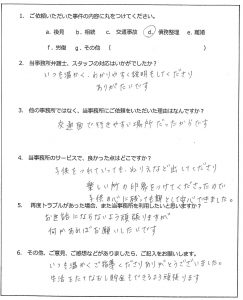 1. ご依頼いただいた事件の内容に丸をつけてください。
a. 後見 b. 相続 c. 交通事故 d. 債務整理 e. 離婚
f. 労働 g. その他 ( )
2. 当事務所弁護士、スタッフの対応はいかがでしたか?
いつも温かく、わかりやすく説明もしてくださり
ありがたいです
3. 他の事務所ではなく、当事務所にご依頼をいただいた理由はなんですか?
交通面で行きやすい場所だったからです
4. 当事務所のサービスで、良かった点はどこですか?
子供をつれていっても、ぬりえなど出してくださり
楽しい所の印象をつけてくださったので
子供
5. 再度トラブルがあった場合、また当事務所を利用したいと思いますか?
お世話にならないよう頑張りますが
何かあればお願いしたいです
6. その他、ご意見、ご感想などがありましたら、ご記入をお願いします。
いつも温かくご指導くださりありがとうございました。
生活をたてなおし貯金もできるよう頑張ります